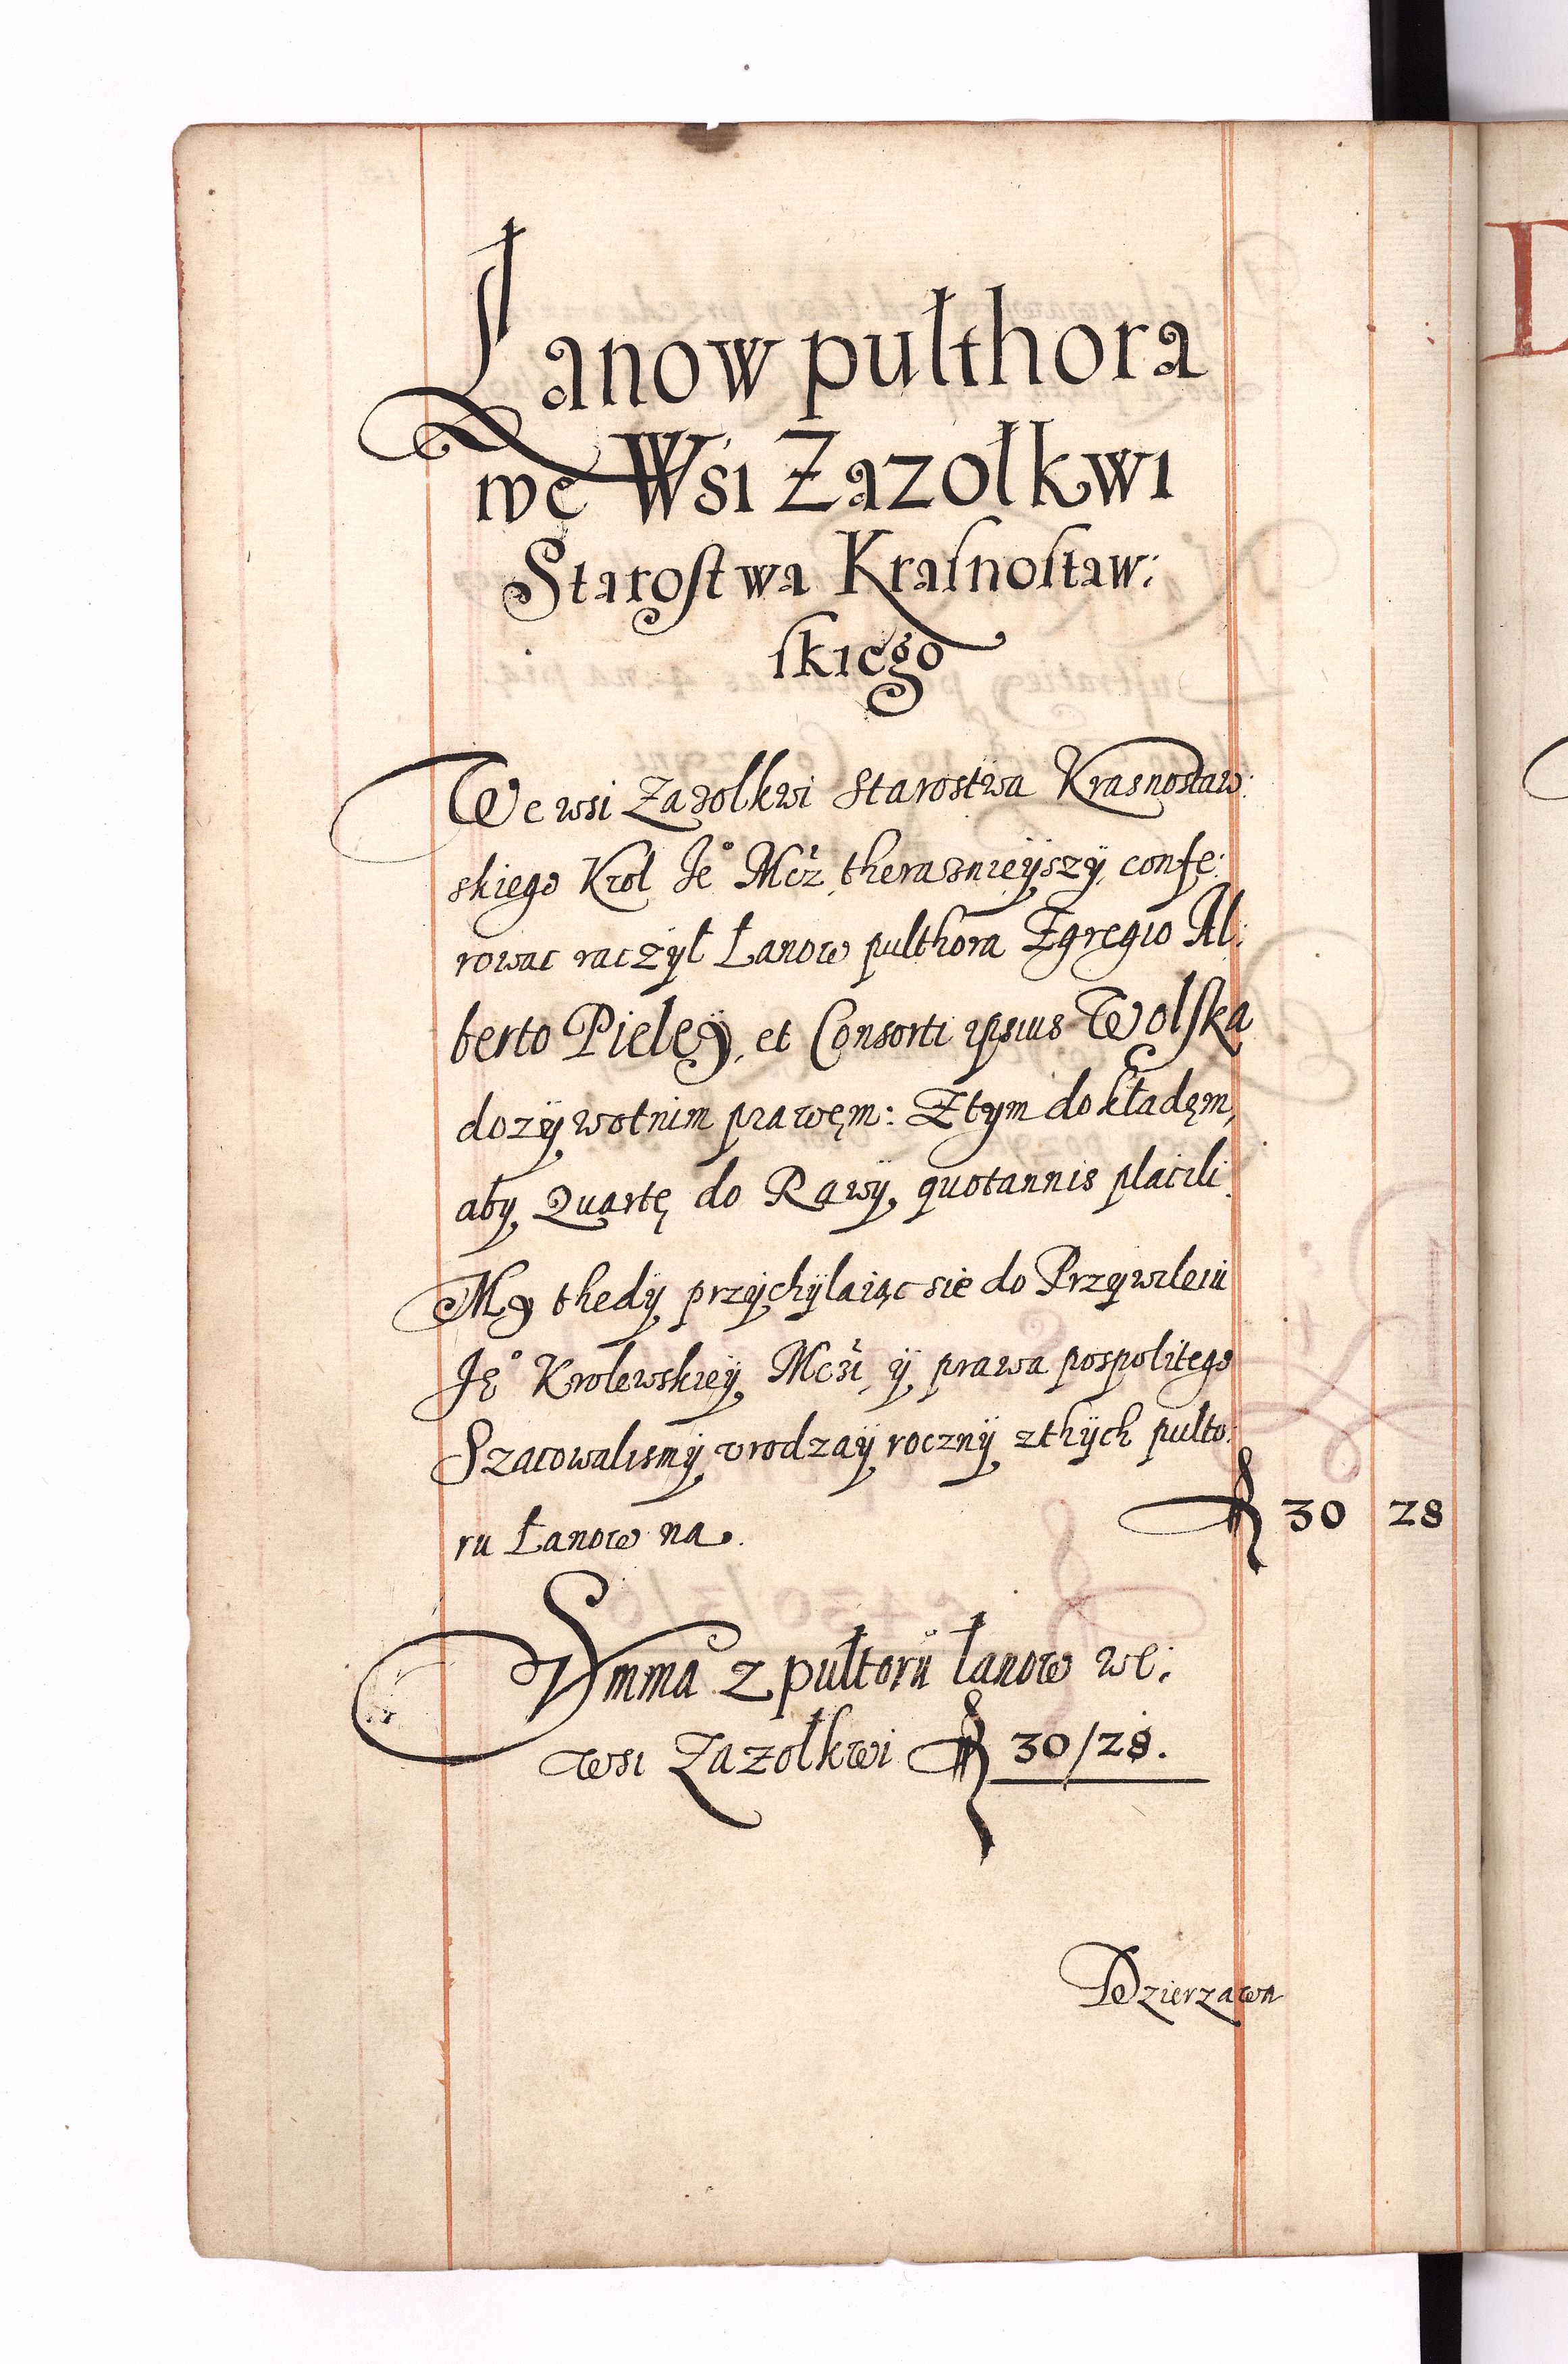 Łanow pułthora
we Wsi Zazołkwi
Starostwa Krasnostaw:
skiego
We wsi Zazolkwi Starostwa Krasnostaw:
skiego Krol Je° Mcz therasznieÿszÿ confe:
rowac raczÿł Łanow pulthora Egregio Al:
berto Pieleÿ, et Consorti ipsius Wolska
dozÿwotnim prawęm: Z tym dokładęm,
aby Quartę do Rawÿ quotannis placili.
My thedÿ przÿchÿlaiąc sie do Przywileiu
Ję° Krolewskieÿ Mczi ÿ prawa pospolitego
Szacowalismÿ vrodzaÿ rocznÿ z thÿch pulto:
ru Łanow na. f 30 28
Summa z pułtoru łanow we:
wsi Zazołkwi f 30/28.
Dzierzawa
D